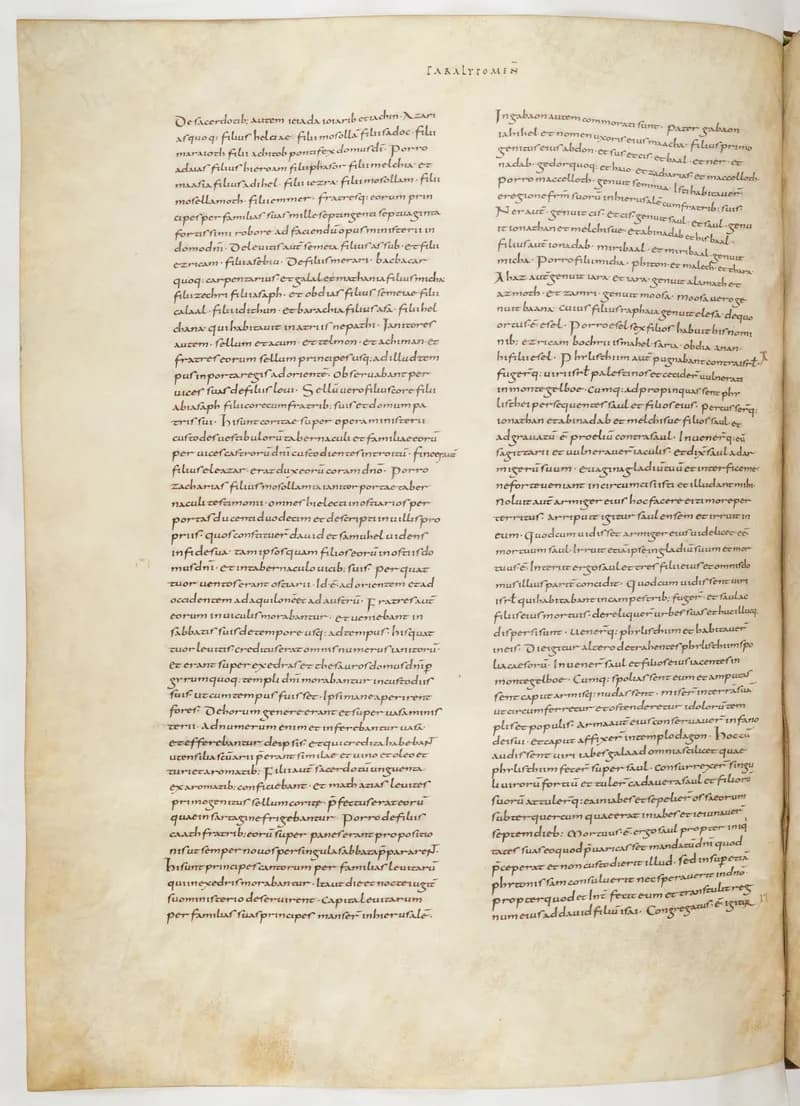 PARALYPOMEN̄
De sacerdotib; autem ieiada ioiarib et iachin · Azari
as quoq; filius helciae · filii mosollā filii sadoc · filii
maraioth filii achitob pontifex domus d̄i · Porro
adaias filius hieroam filii phasor · filii melchia · et
maasia filius adihel · filii iezra · filii mosollam · filii
mosollamoth · filii emmer · fratresq; eorum prin
cipes per familias suas mille septingenti septuaginta
fortissimi robore ad faciendū opus ministerii in
domo dn̄i · De leuitis aut̄ semeia filius assub · et filii
ezricam · filii asebiu · De filiis merari · bacbacar
quoq; carpentarius et galal et mathania filius micha
filii zechri filii asaph · et obdias filius semeiae · filii
calaal · filii idithun · et barachia filius asa · filii hel
chana qui habitauit in atriis nepathi · Ianitores
autem · sellum et acum · et telmon · et achiman · et
fratres eorum sellum princeps usq; ad illud tem
pus in porta regis ad orientē · Obseruabant per
uices suas de filiis leui · Sellū uero filius core filii
abiasaph filii core cum fratrib; suis et domum pa
tris sui · hi sunt coritae super opera ministerii
custodes uestibulorū tabernaculi et familiae eorū
per uices castrorū dn̄i custodientes introitū · finees aut̄
filius eleazar · erat dux eorū coram dn̄o · Porro
zacharias filius mosollamia ianitor portae taber
naculi testimonii · omnes hi electi in ostiarios per
portas ducenti duodecim et descripti in uillis pro
priis · quos constituer̄ dauid et samuhel uidens
in fide sua · tam ipsos quam filios eorū in ostiis do
mus dn̄i · et in tabernaculo uicib; suis · per quat
tuor uentos erant ostiarii · Id · ē · ad orientem et ad
occidentem ad aquilonē et ad austrū · Fratres aut̄
eorum in uiculis morabantur · et ueniebant in
sabbatis suis de tempore usq; ad tempus · his quat
tuor leuitis creditus erat omnis numerus ianitorū ·
et erant super exedras et thesauros domus dn̄i p
gyrum quoq; templi dn̄i morabantur in custodiis
suis · ut cum tempus fuisset · Ipsi mane aperirent
fores · De horum genere erant et super uasa minis
terii · Ad numerum enim et inferebantur uasa ·
et efferebantur de ipsis · et qui credita habebant
utensilia sc̄uarii · p̄erant similae · et uino et oleo et
turi et aromatib; Filii aut̄ sacerdotū unguenta
ex aromatib; conficiebant · et mathathias leuites
primogenitus sellum coritae p̄fectus erat eorū
quae in sartagine frigebantur · Porro de filiis
caath fratrib; eorū super panes erant propositio
nis ut semper nouos per singula sabbata p̄pararent ·
hi sunt principes cantorum per familias leuitarū
qui in exedris morabantur · Ita ut die et nocte iugit̄
suo ministerio deseruirent · Capita leuitarum
per familias suas principes manser̄ in hierusalē ·
In gabaon autem commorati sunt · Pater gabaon
iahihel et nomen uxoris eius maacha · filius primo
genitus eius abdon · et sur et cis et baal · et ner · et
nadab · gedor quoq; et haio · et zacharias et maccelloth ·
Porro maccelloth · genuit semmua · Isti habitauer̄
e regione fr̄m suorū in hierusalē cum fratrib; suis ·
Ner aut̄ · genuit cis · et cis · genuit saul · et saul · genu
it ionathan et melchisue · et abinadab et hisbaal ·
filius aut̄ ionadab · miribaal · et miribaal · genuit
micha · Porro filii micha · phiton · et malech · et thara ·
Ahaz aut̄ genuit iara · et iara · genuit alamath et
azmoth · et zamri · genuit moosa · moosa uero ge
nuit baana · cuius filius raphaia genuit elesa · de quo
ortus · ē · esel · Porro esel sex filios habuit his nomi
nib; ezricam bochru ismahel · saria · obdia · anan ·
hi filii esel · Philisthiim aut̄ pugnabant contra isrl̄ ·
fugerq; uiri isrl̄ palestinos et cecider̄ uulnerati
in monte gelboe · Cumq; adpropinquassent phy
listhei persequentes saul et filios eius · percusserq;
ionathan et abinadab et melchisue filios saul · et
adgrauatū · ē · proeliū contra saul · Inuenerq; eū
sagittarii et uulnerauer̄ iaculis · et dix̄ saul ad ar
migerū suum · Euagina gladiū tuū et interfice me ·
ne forte ueniant incircumcisi isti et illudant mihi ·
Noluit aut̄ armiger eius hoc facere timore per
territus · arripuit igitur saul ensem et irruit in
eum · Quod cum uidisset armiger eius uidelicet eē
mortuum saul · Irruit etiā ipse in gladiū suum et mor
tuus · ē · Interiit ergo saul et tres filii eius et omnis do
mus illius parit̄ concidit · Quod cum uidissent uiri
isrl̄ qui habitabant in campestrib; fuger̄ · et saul ac
filiis eius mortuis · dereliquer̄ urbes suas et huc illucq;
dispersi sunt · Uenerq; phylisthiim et habitauer̄
in eis · Die igitur altero detrahentes phylisthiim spo
lia caesorū · Inuener̄ saul et filios eius iacentes in
monte gelboe · Cumq; spoliassent eum et amputas
sent caput armisq; nudassent · miser̄ in terrā suā
ut circumferretur et ostenderetur idolorū tem
plis et populis · Arma aut̄ eius consecrauer̄ in fano
dei sui · et caput affixer̄ in templo dagon · Hoc cū
audissent uiri iabes galaad omnia scilicet quae
phylisthiim fecer̄ super saul · Consurrexer̄ singu
li uirorū fortiū et tuler̄ cadauera saul et filiorū
suorū attulerq; ea in iabes et sepelier̄ ossa eorum
subter quercum quae erat in iabes et ieiunauer̄
septem dieb; Mortuus · ē · ergo saul propter iniq
tates suas eo quod p̄uaricasset mandatū dn̄i quod
p̄ceperat et non custodierit illud · sed insuper etiā
phytonissam consuluerit nec sperauerit in dn̄o ·
propter quod et Int̄ · fecit eum et transtulit reg
num eius ad dauid filiū isai · Congregatus · ē · igitur